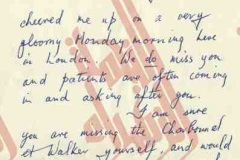 cheered me up on a very
gloomy Monday morning here
in London. We do miss you
and patients are often coming
in and asking after you.
I am sure
you are missing the Charbonnel
et Walker yourself, and would